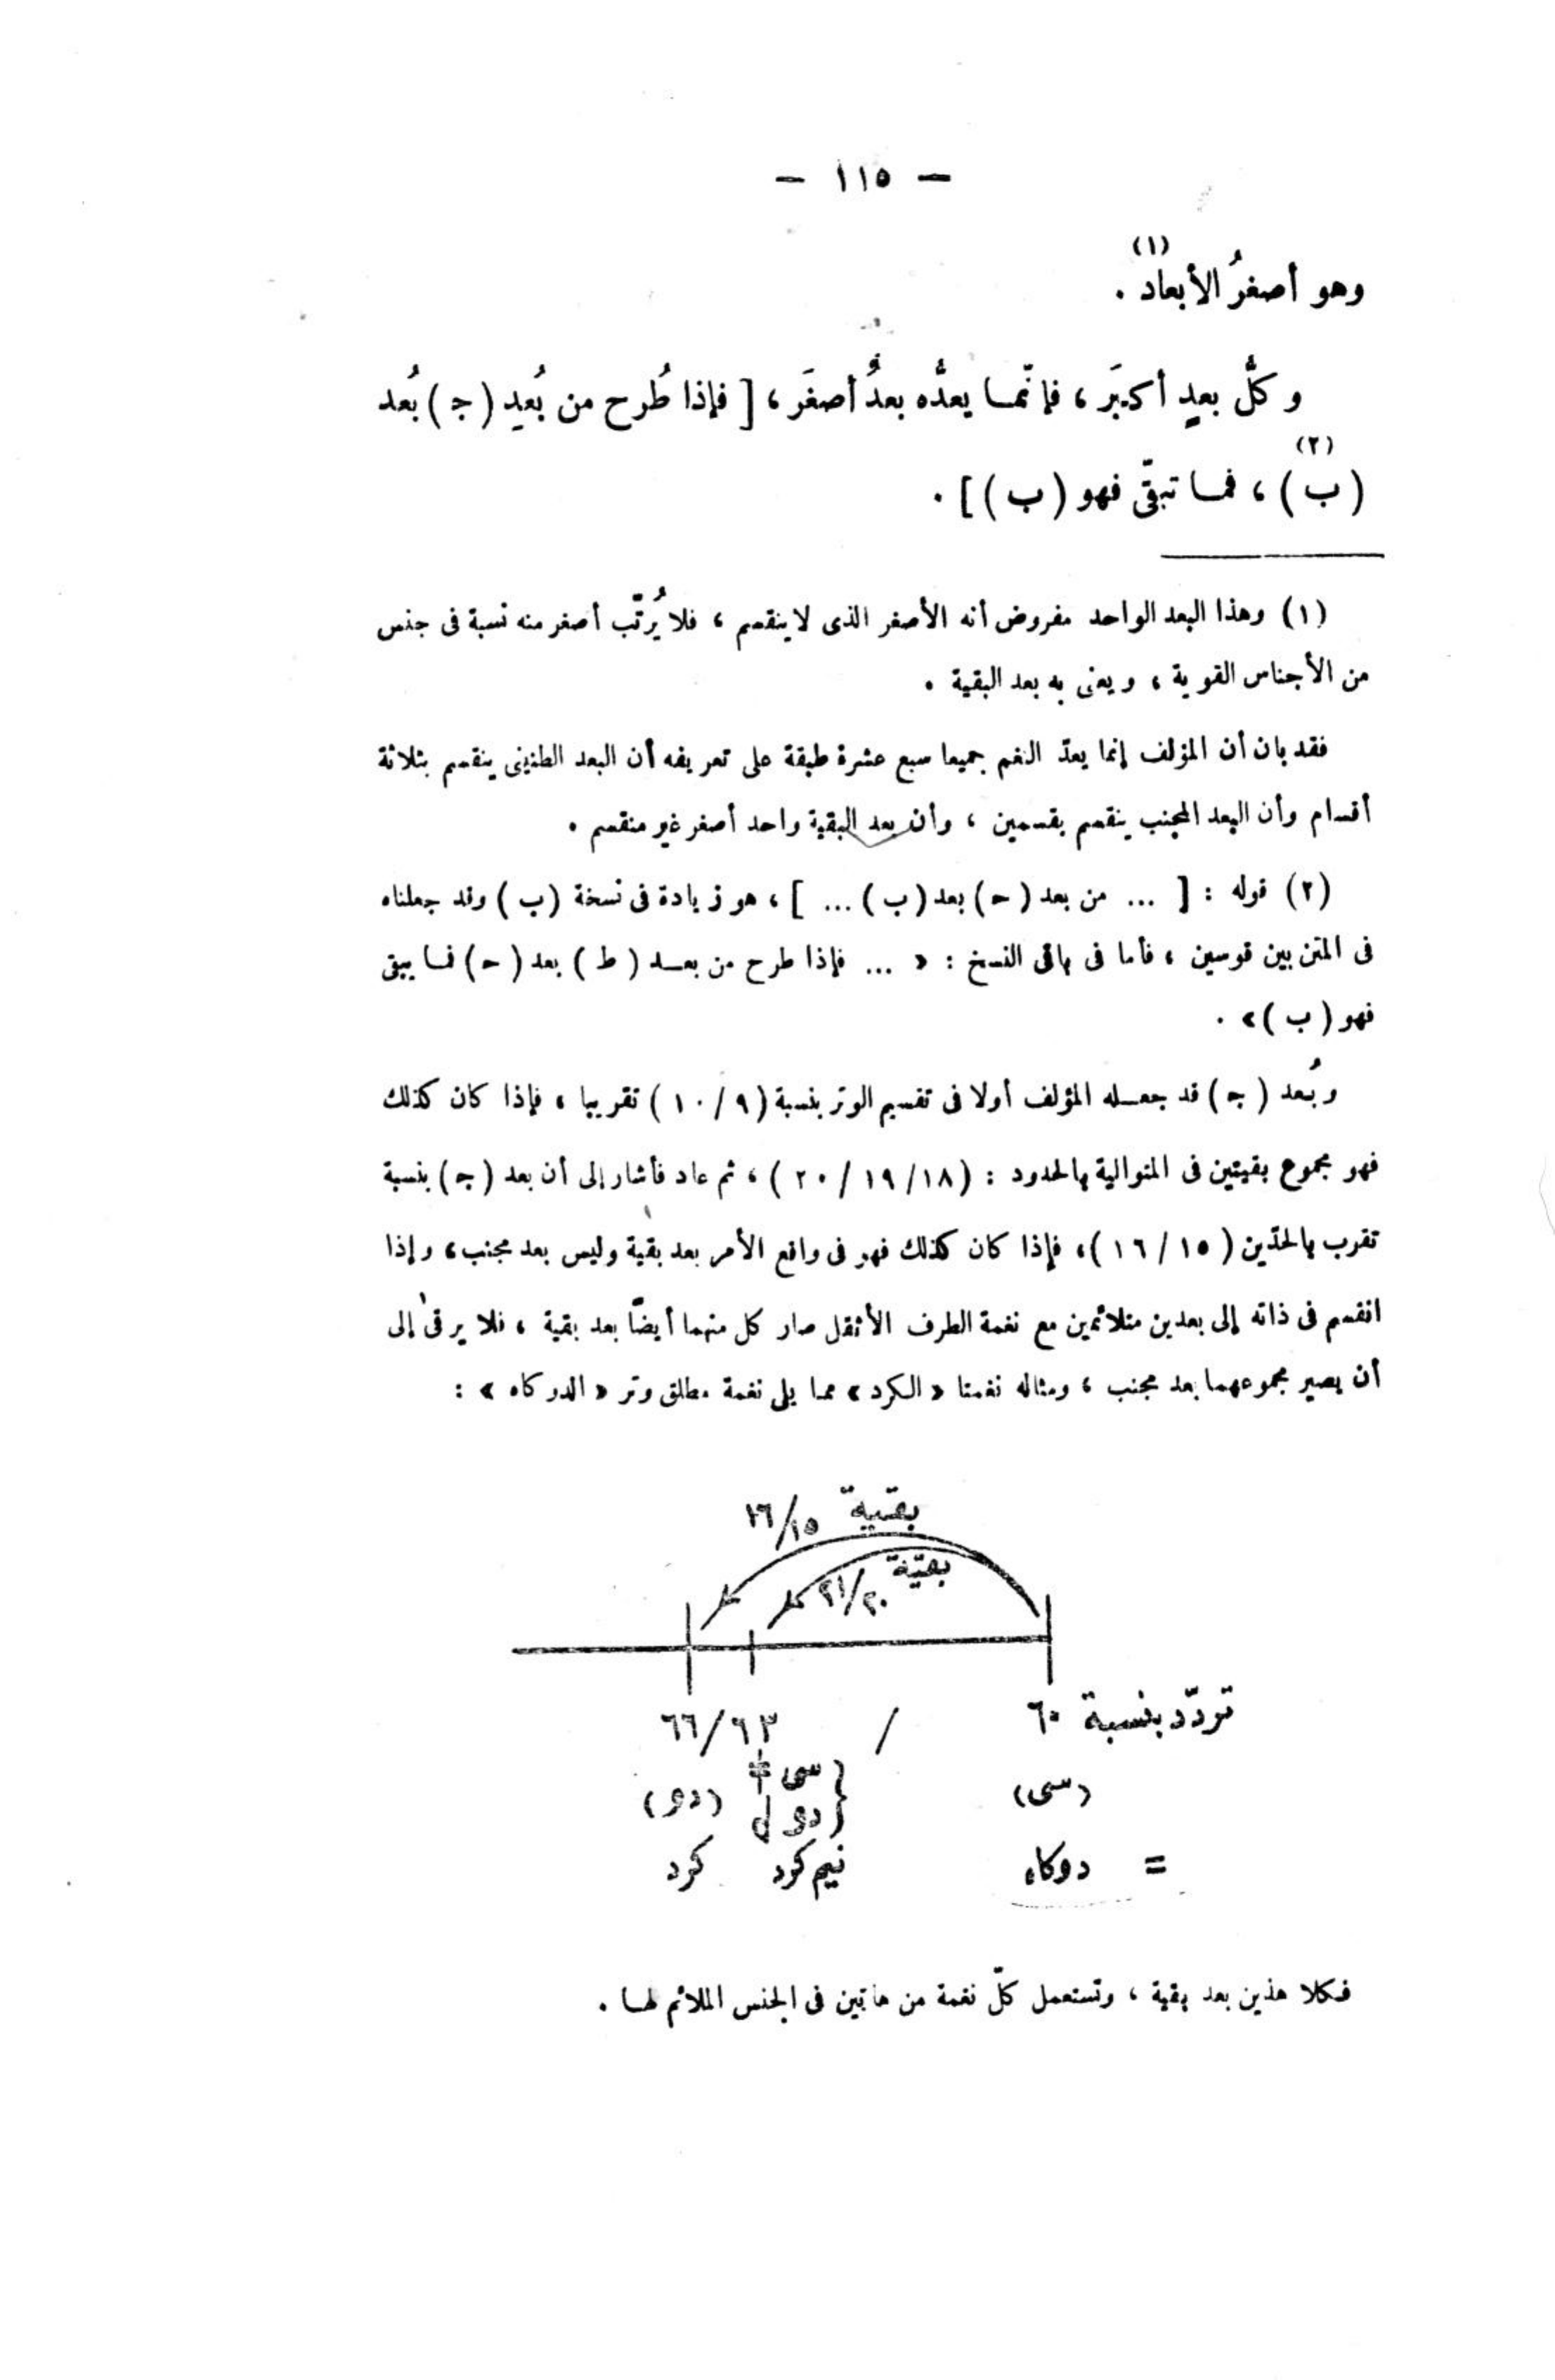 — ١١٥ —
وهو أصغرُ الأبعاد(١) .
وكلُّ بعدٍ أكبَرَ ، فإنّما يعدُّه بعدٌ أصغَر ، [ فإذا طُرح من بُعدِ (ج) بُعد
(ب)(٢) ، فما تبقّى فهو (ب) ] .
(١) وهذا البعد الواحد مفروض أنه الأصغر الذى لا ينقسم ، فلا يُرتّب أصغر منه نسبة فى جنس
من الأجناس القوية ، ويعنى به بعد البقية .
فقد بان أن المؤلف إنما يعدّ النغم جميعا سبع عشرة طبقة على تعريفه أن البعد الطنينى ينقسم بثلاثة
أقسام وأن البعد المجنب ينقسم بقسمين ، وأن بعد البقية واحد أصغر غير منقسم .
(٢) قوله : [ ... من بعد (ح) بعد (ب) ... ] ، هو زيادة فى نسخة (ب) وقد جعلناه
فى المتن بين قوسين ، فأما فى باقى النسخ : « ... فإذا طرح من بعد (ط) بعد (ح) فما يبقى
فهو (ب) » .
وبُعد (ج) قد جعله المؤلف أولا فى تقسيم الوتر بنسبة (١٠/٩) تقريبا ، فإذا كان كذلك
فهو مجموع بقيتين فى المتوالية بالحدود : (٢٠/١٩/١٨) ، ثم عاد فأشار إلى أن بعد (ج) بنسبة
تقرب بالحدّين (١٦/١٥) ، فإذا كان كذلك فهو فى واقع الأمر بعد بقية وليس بعد مجنب ، وإذا
انقسم فى ذاته إلى بعدين متلائمين مع نغمة الطرف الأثقل صار كل منهما أيضًا بعد بقية ، فلا يرقى إلى
أن يصير مجموعهما بعد مجنب ، ومثاله نغمتا « الكرد » مما يلى نغمة مطلق وتر « الدوكاه » :
بقية ١٦/١٥
بقية ٢١/٢٠
تردّد بنسبة ٦٠ / ٦٣/٦٦
(سى) { سى ‡ (دو)
دو
= دوكاه نيم كرد كرد
فكلا هذين بعد بقية ، وتستعمل كلّ نغمة من هاتين فى الجنس الملائم لها .